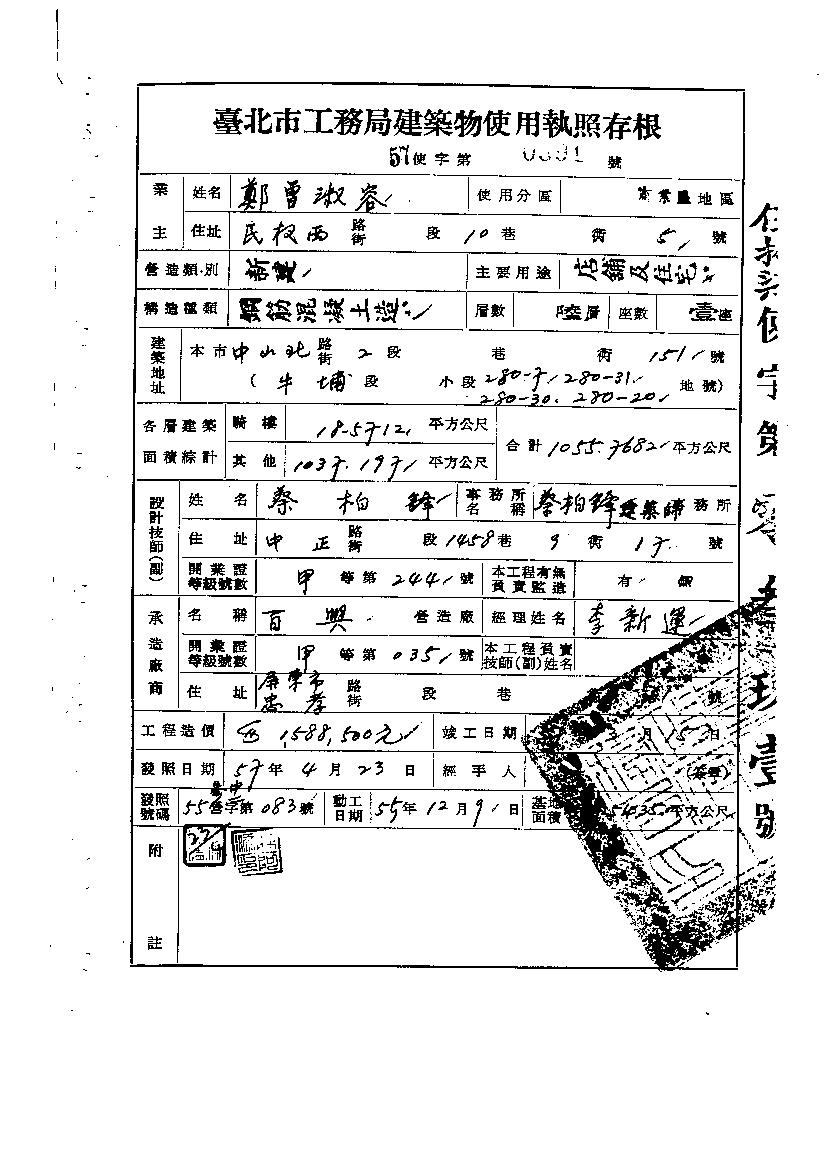 臺北市工務局建築物使用執照存根
57使字第 0391 號
業主 姓名 鄭曾淑容 使用分區 商業區地區
住址 民权西 路街 段 10巷 衖 5 號
營造類別 新建 主要用途 店鋪及住宅
構造種類 鋼筋混凝土造 層數 陸層 座數 壹座
建築地址 本市中山北 路街 2段 巷 衖 151號
(牛埔段 小段 280-7, 280-31, 地號)
280-30, 280-20
各層建築面積綜計 騎樓 平方公尺 合計 1055.7682 平方公尺
其他 平方公尺
設計技師(副) 姓名 蔡柏鋒 事務所名稱 蔡柏鋒建築師事務所
住址 中正 路街 段 1458巷 9衖 號
開業證等級號數 甲等第2441號 本工程有無負責監造 有
承造廠商 名稱 百興 營造廠 經理姓名 李新運
開業證等級號數 甲等第0351號 本工程負責技師(副)姓名
住址 屏東市忠孝 路街 段 巷 號
工程造價 1,588,500元 竣工日期 月15日
發照日期 57年4月23日 經手人
發照號碼 55 字第083號 動工日期 55年12月9日 基地面積 平方公尺
附註
字第零叁玖壹號